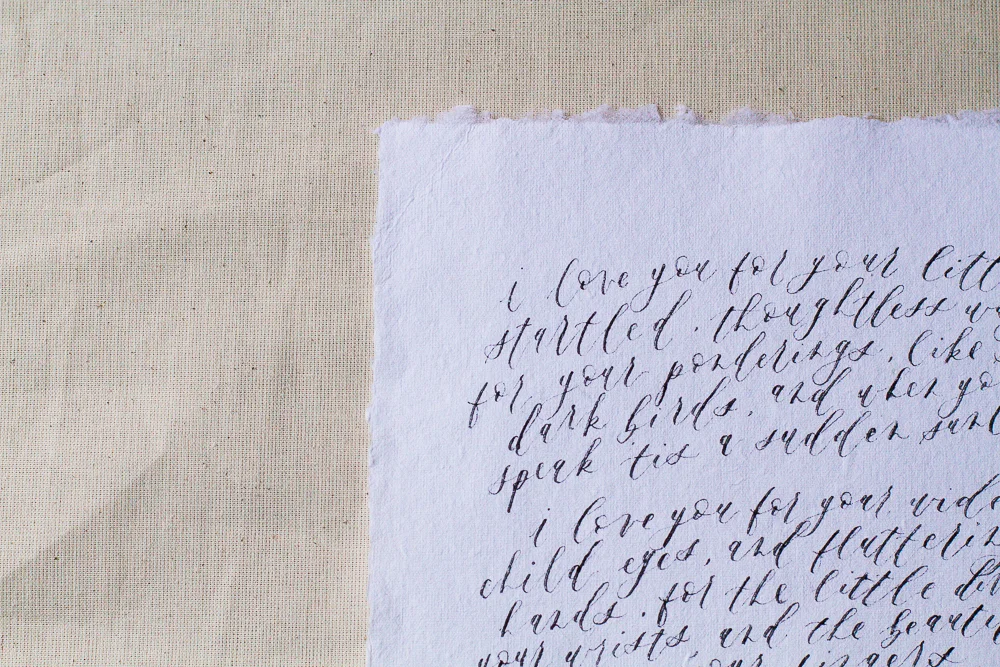 i love you for your litt
startled, thoughtless wa
for your ponderings, like
dark birds, and when yo
speak 'tis a sudden sunl
i love you for your wide
child eyes, and flutterin
hands, for the little
your wrists, and the beauti
your fingers